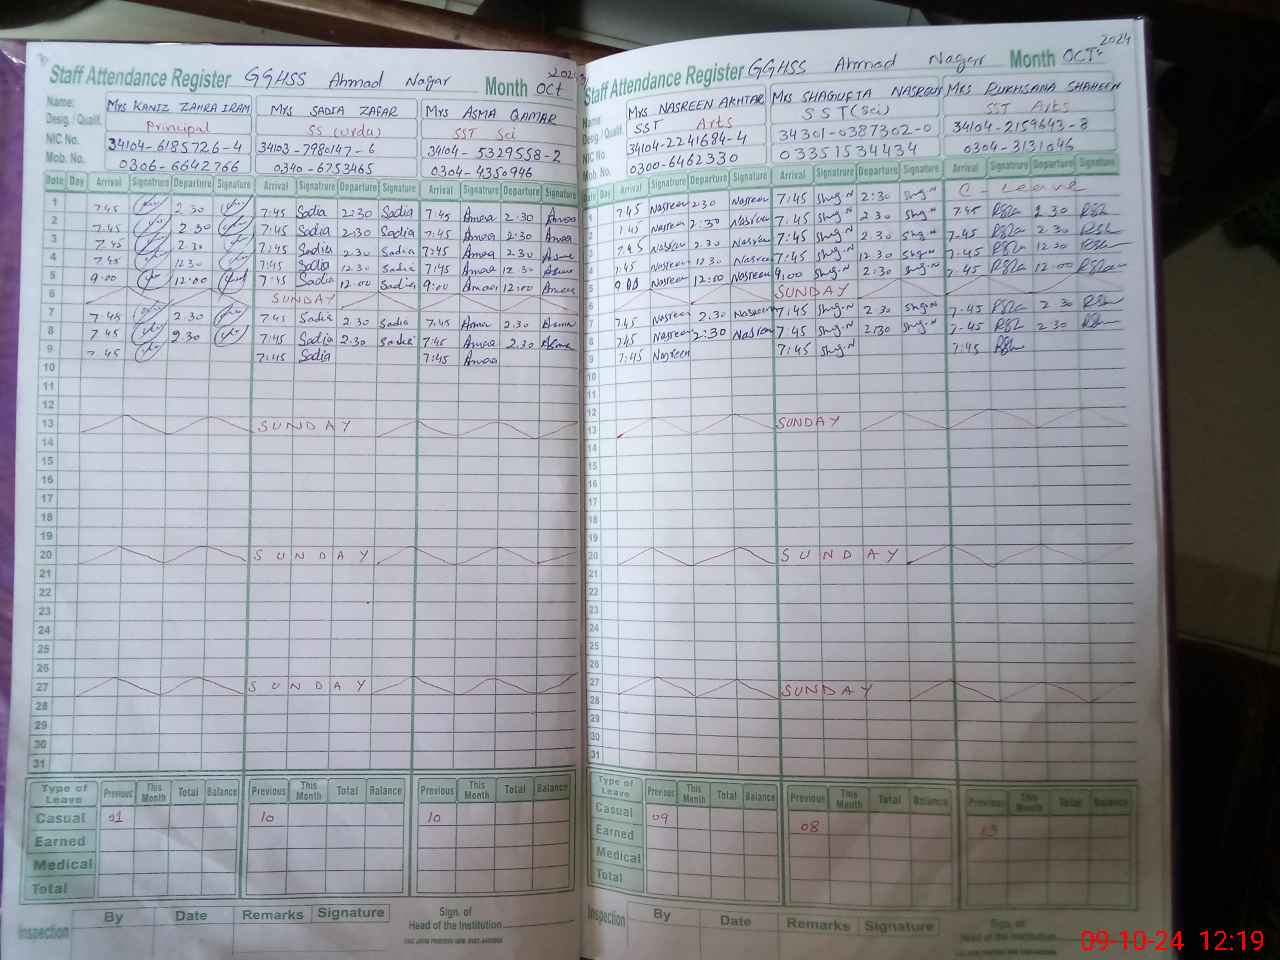 Staff Attendance Register GGHSS Ahmad Nagar Month Oct 2024
Name: Mrs KANIZ ZAHRA IRAM Mrs SADIA ZAFAR Mrs ASMA QAMAR
Desig. / Qualif. Principal SS (Urdu) SST Sci
NIC No. 34104-6185726-4 34103-7980147-6 34104-5329558-2
Mob. No. 0306-6642766 0340-6753465 0304-4350946
Date Day Arrival Signature Departure Signature Arrival Signature Departure Signature Arrival Signature Departure Signature
1 7.45 2.30 7:45 Sadia 2:30 Sadia 7:45 Amaa 2:30 Amaa
2 7.45 2.30 7:45 Sadia 2:30 Sadia 7:45 Amaa 2:30 Amaa
3 7.45 2.30 7:45 Sadia 2.30 Sadia 7:45 Amaa 2.30 Asma
4 7.45 12.30 7:45 Sadia 12.30 Sadia 7:45 Amaa 12.30 Asma
5 9:00 12:00 7:45 Sadia 12.00 Sadia 9:00 Amaa 12:00 Amaa
6 SUNDAY
7 7.45 2.30 7:45 Sadia 2.30 Sadia 7.45 Asma 2.30 Asma
8 7.45 2.30 7:45 Sadia 2.30 Sadia 7:45 Amaa 2.30 Asma
9 7.45 7:45 Sadia 7:45 Amaa
10
11
12
13 SUNDAY
14
15
16
17
18
19
20 SUNDAY
21
22
23
24
25
26
27 SUNDAY
28
29
30
31
Type of Leave Previous This Month Total Balance Previous This Month Total Balance Previous This Month Total Balance
Casual 01 10 10
Earned
Medical
Total
Inspection By Date Remarks Signature Sign. of Head of the Institution
Staff Attendance Register GGHSS Ahmad Nagar Month OCT 2024
Name Mrs NASREEN AKHTAR Mrs SHAGUFTA NASREEN Mrs RUKHSANA SHAHEEN
Desig. / Qualif. SST Arts SST (Sci) SST Arts
NIC No. 34104-2241684-4 34301-0387302-0 34104-2159643-8
Mob. No. 0300-6462330 03351534434 0304-3131046
Date Day Arrival Signature Departure Signature Arrival Signature Departure Signature Arrival Signature Departure Signature
1 7.45 Nasreen 2:30 Nasreen 7:45 Shug.N 2:30 Shug.N C-Leave
2 7.45 Nasreen 2:30 Nasreen 7:45 Shug.N 2.30 Shug.N 7.45 2.30
3 7.45 Nasreen 2.30 Nasreen 7:45 Shug.N 2.30 Shug.N 7.45 2.30
4 7.45 Nasreen 12.30 Nasreen 7:45 Shug.N 12.30 Shug.N 7.45 12.30
5 9.00 Nasreen 12:00 Nasreen 9:00 Shug.N 2:30 Shug.N 7.45 12.00
6 SUNDAY
7 7.45 Nasreen 2.30 Nasreen 7:45 Shug.N 2.30 Shug.N 7.45 2.30
8 7.45 Nasreen 2:30 Nasreen 7:45 Shug.N 2:30 Shug.N 7.45 2.30
9 7:45 Nasreen 7:45 Shug.N 7:45
10
11
12
13 SUNDAY
14
15
16
17
18
19
20 SUNDAY
21
22
23
24
25
26
27 SUNDAY
28
29
30
31
Type of Leave Previous This Month Total Balance Previous This Month Total Balance Previous This Month Total Balance
Casual 09 08
Earned
Medical
Total
Inspection By Date Remarks Signature Sign. of Head of the Institution
09-10-24 12:19